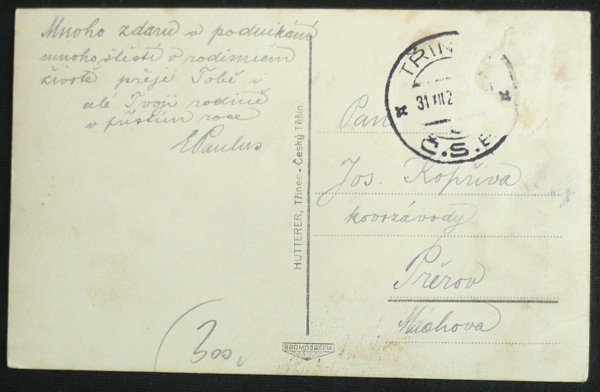 Mnoho zdaru v podnikání
mnoho štěstí v rodinném
životě přeje Tobě i
celé Tvojí rodině
v příštím roce
E Paulus
HUTTERER, Třinec - Český Těšín.
BROMOGRAFIA
TŘIN
31 XII 2
Č.S.
Pan
Jos. Kopřiva
kovozávody
Přerov
Máchova
300